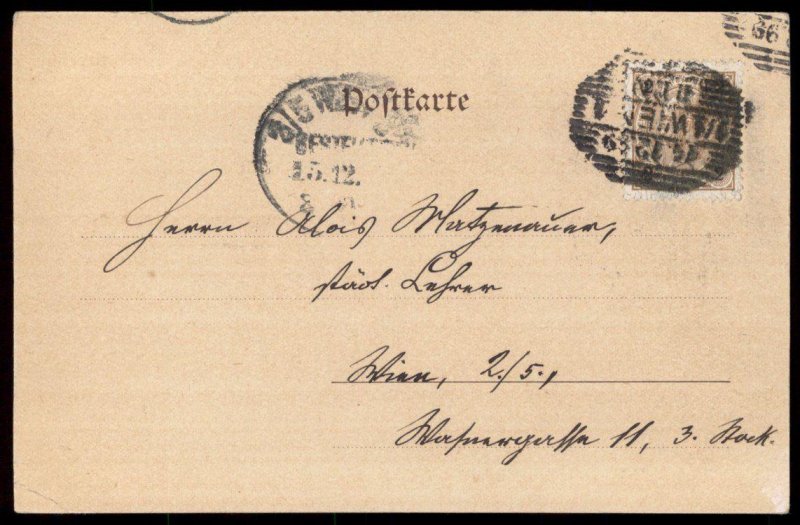 Postkarte
WIEN
15.12.
Herrn Alois Matzenauer,
städt. Lehrer
Wien, 2./5.,
Wasnergasse 11, 3. Stock.